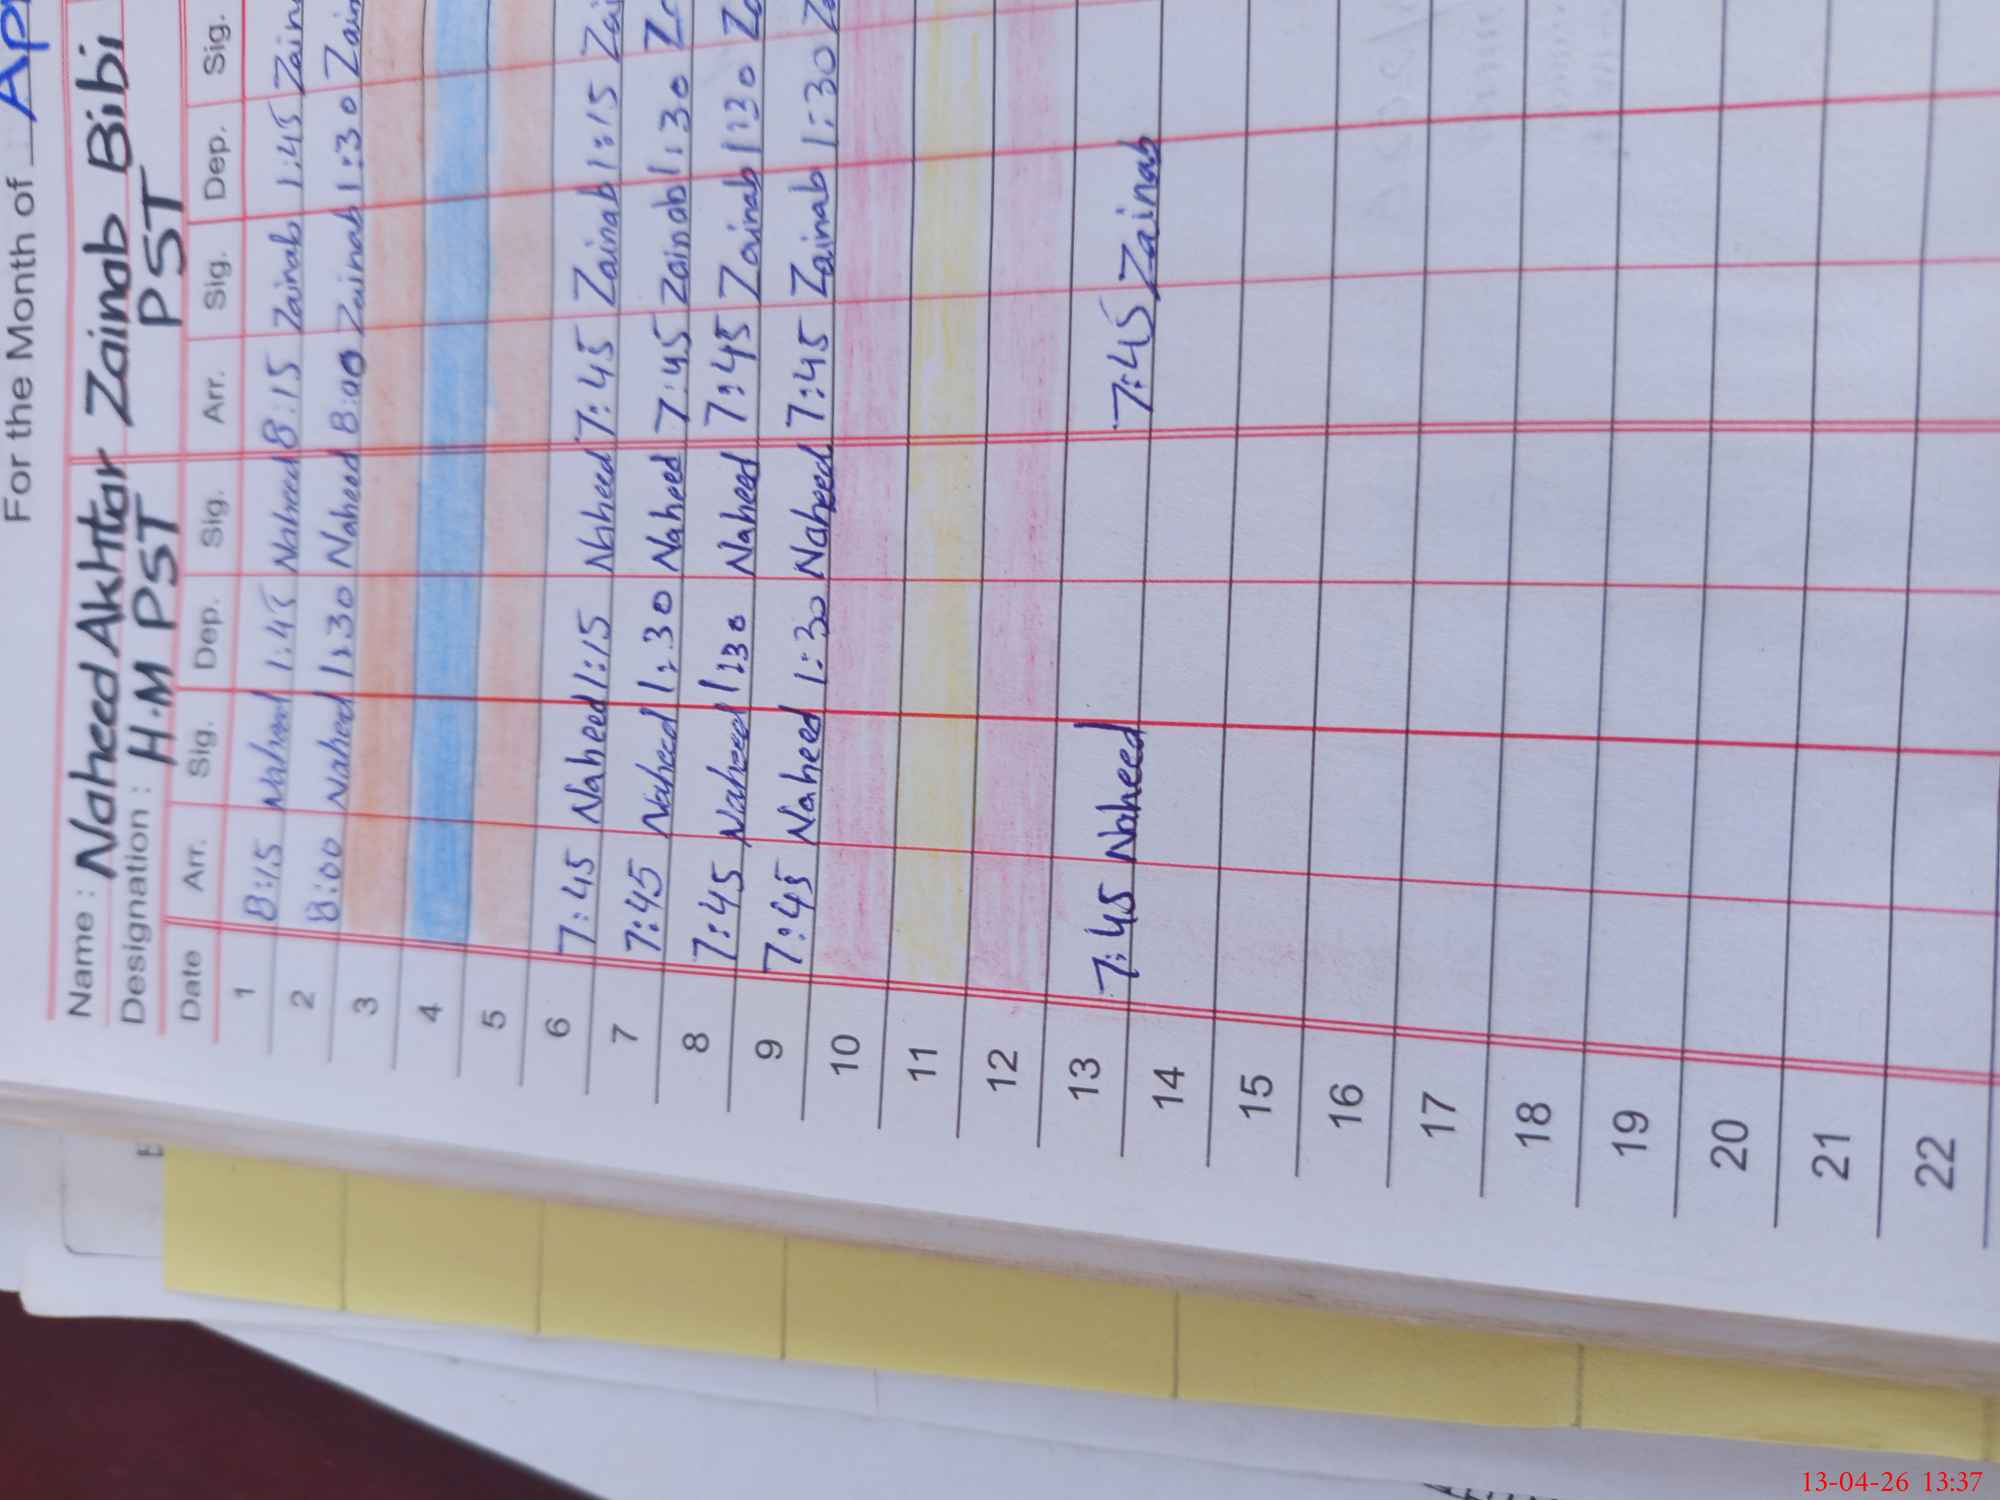 For the Month of Ap
Name : Naheed Akhtar Zainab Bibi
Designation : H.M PST PST
Date Arr. Sig. Dep. Sig. Arr. Sig. Dep. Sig.
1 8:15 Naheed 1:45 Naheed 8:15 Zainab 1:45 Zain
2 8:00 Naheed 1:30 Naheed 8:00 Zainab 1:30 Zain
3
4
5
6 7:45 Naheed 1:15 Naheed 7:45 Zainab 1:15 Zai
7 7:45 Naheed 1:30 Naheed 7:45 Zainab 1:30 Z
8 7:45 Naheed 1:30 Naheed 7:45 Zainab 1:30 Za
9 7:45 Naheed 1:30 Naheed 7:45 Zainab 1:30 Za
10
11
12
13 7:45 Naheed 7:45 Zainab
14
15
16
17
18
19
20
21
22
13-04-26 13:37